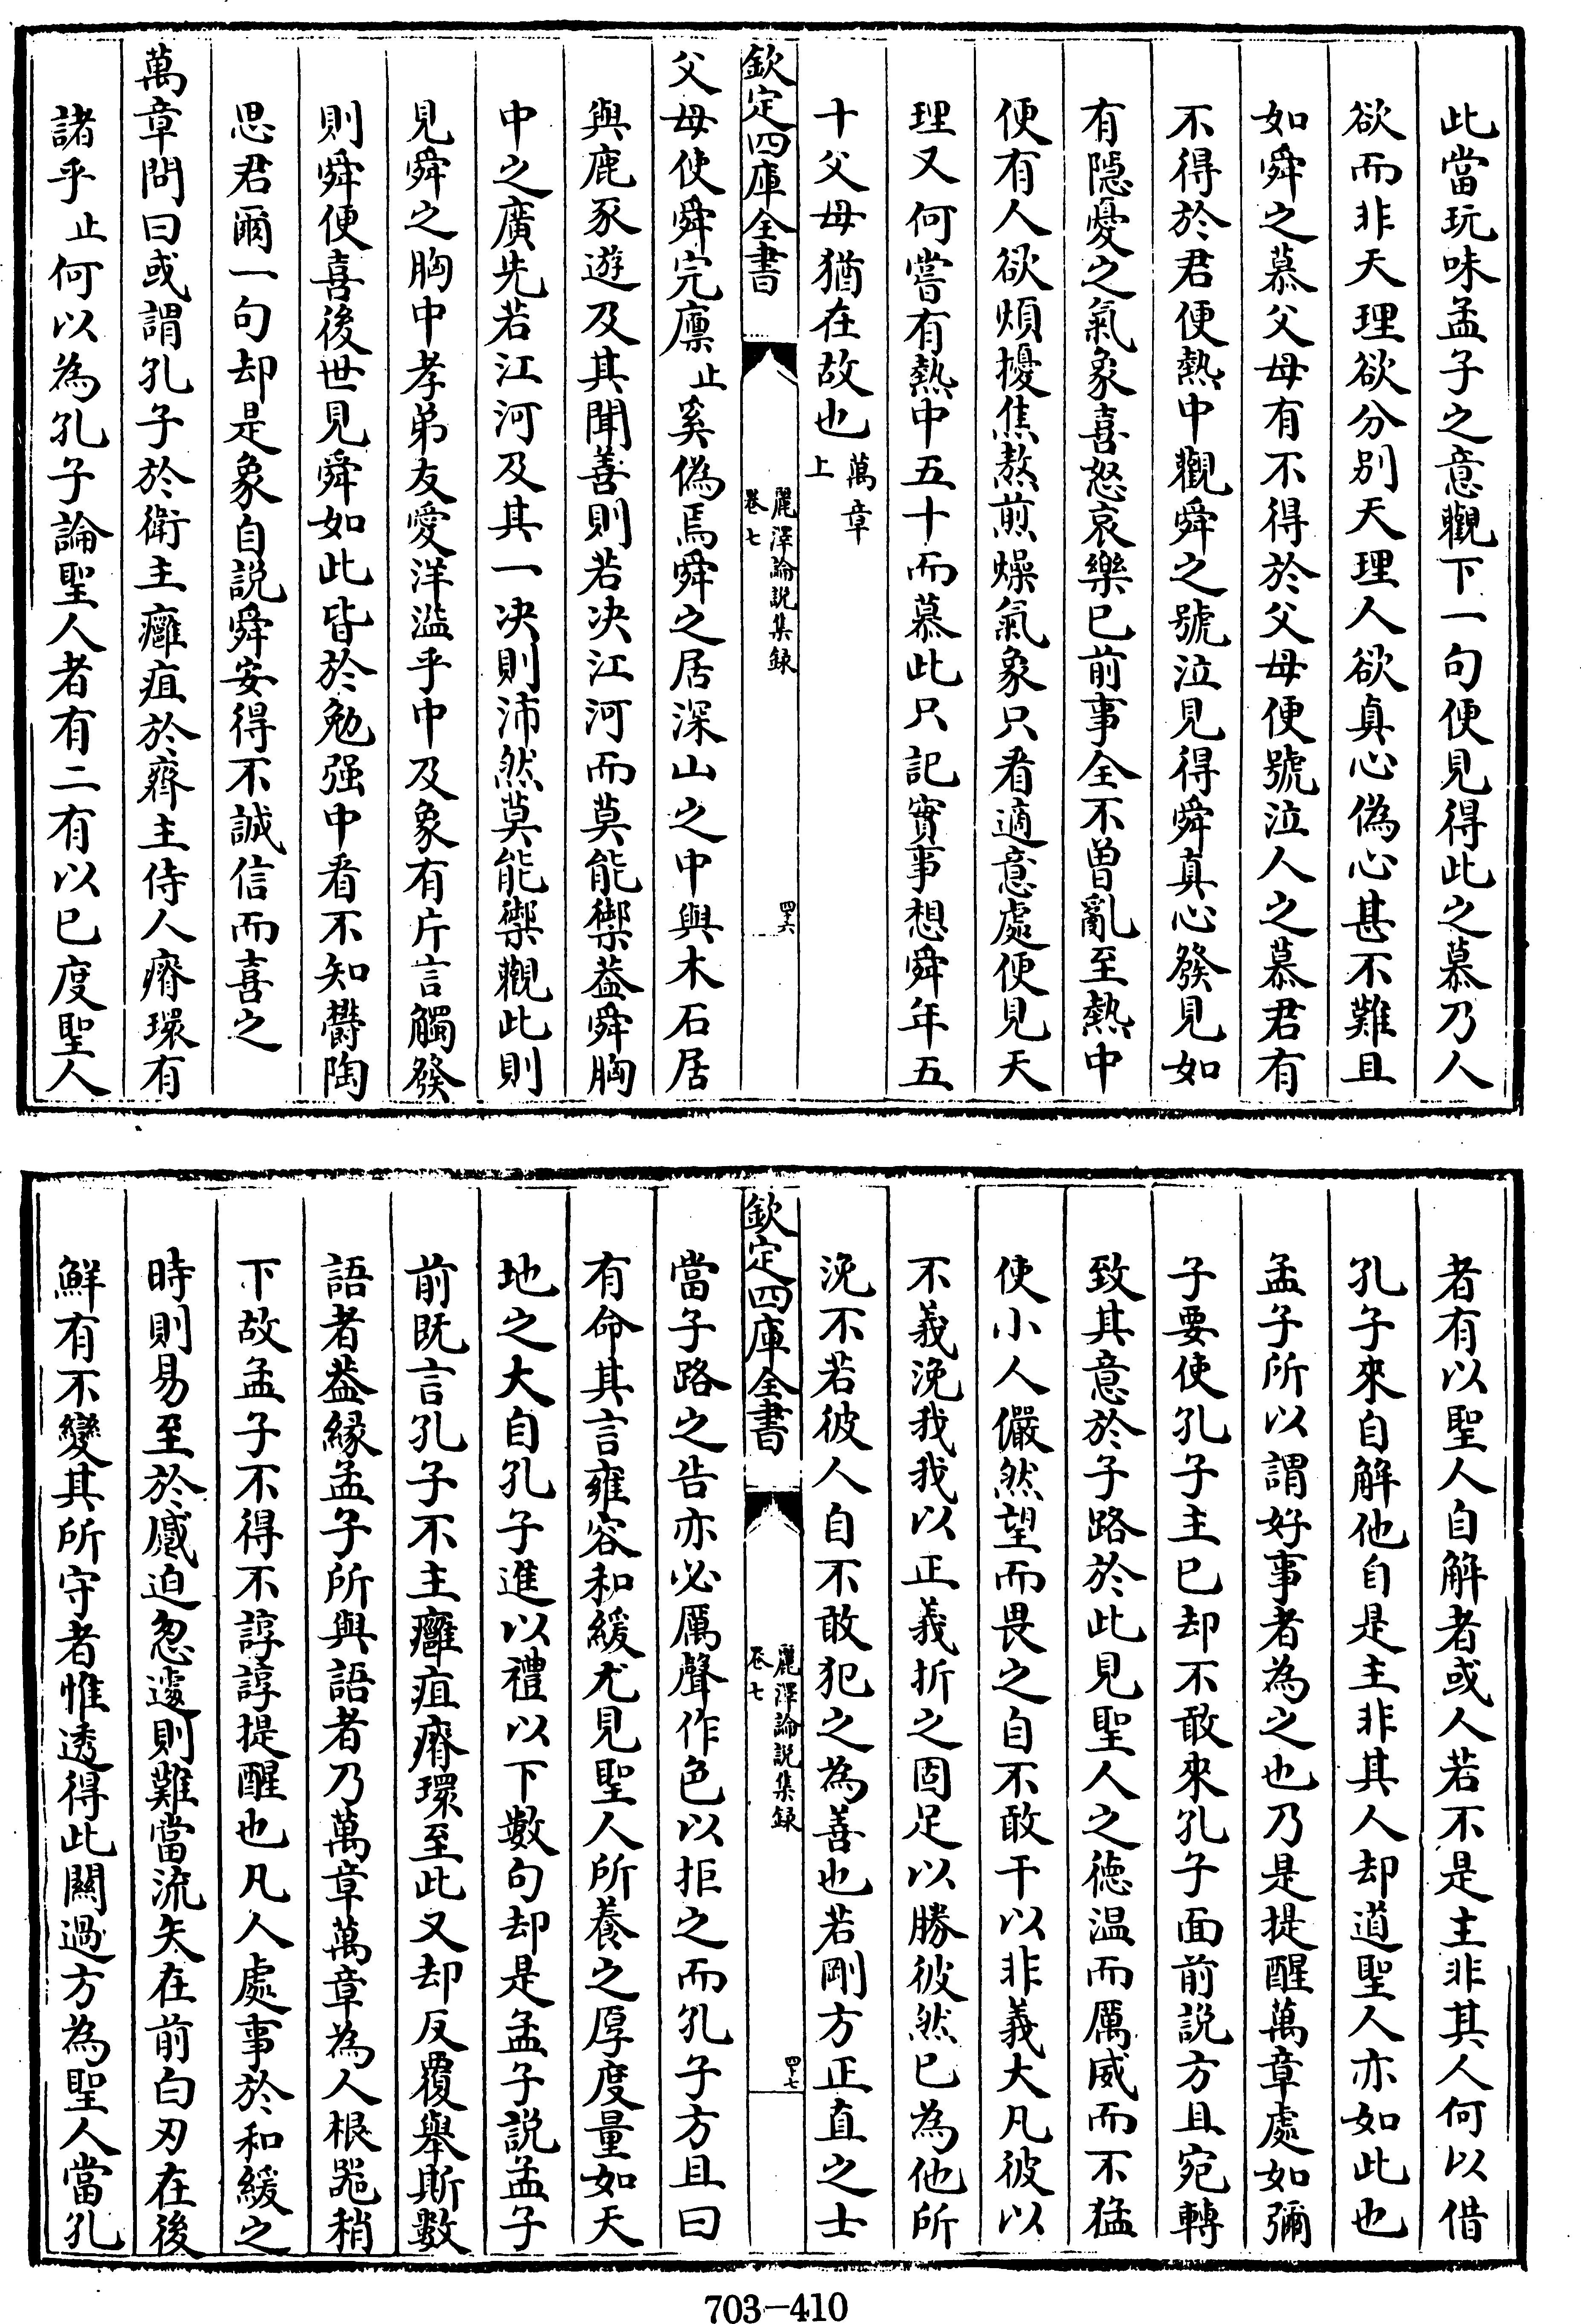 此當玩味孟子之意觀下一句便見得此之慕乃人
欲而非天理欲分别天理人欲真心偽心甚不難且
如舜之慕父母有不得於父母便號泣人之慕君有
不得於君便熱中觀舜之號泣見得舜真心發見如
有隱憂之氣象喜怒哀樂已前事全不曽亂至熱中
便有人欲煩擾焦熬煎燥氣象只看適意處便見天
理又何嘗有熱中五十而慕此只記實事想舜年五
十父母猶在故也萬章上
欽定四庫全書
麗澤論説集録
卷七
四十六
父母使舜完廩止奚偽焉舜之居深山之中與木石居
與鹿豕遊及其聞善則若决江河而莫能禦葢舜胸
中之廣先若江河及其一决則沛然莫能禦觀此則
見舜之胸中孝弟友愛洋溢乎中及象有片言觸發
則舜便喜後世見舜如此皆於勉强中看不知鬱陶
思君爾一句却是象自説舜安得不誠信而喜之
萬章問曰或謂孔子於衛主癰疽於齊主侍人瘠環有
諸乎止何以為孔子論聖人者有二有以已度聖人
者有以聖人自解者或人若不是主非其人何以借
孔子來自解他自是主非其人却道聖人亦如此也
孟子所以謂好事者為之也乃是提醒萬章處如彌
子要使孔子主已却不敢來孔子面前説方且宛轉
致其意於子路於此見聖人之德温而厲威而不猛
使小人儼然望而畏之自不敢干以非義大凡彼以
不義浼我我以正義折之固足以勝彼然已為他所
浼不若彼人自不敢犯之為善也若剛方正直之士
欽定四庫全書
麗澤論説集録
卷七
四十七
當子路之告亦必厲聲作色以拒之而孔子方且曰
有命其言雍容和緩尤見聖人所養之厚度量如天
地之大自孔子進以禮以下數句却是孟子説孟子
前既言孔子不主癰疽瘠環至此又却反覆舉斯數
語者葢緣孟子所與語者乃萬章萬章為人根器稍
下故孟子不得不諄諄提醒也凡人處事於和緩之
時則易至於蹙迫怱遽則難當流矢在前白刃在後
鮮有不變其所守者惟透得此關過方為聖人當孔
703-410